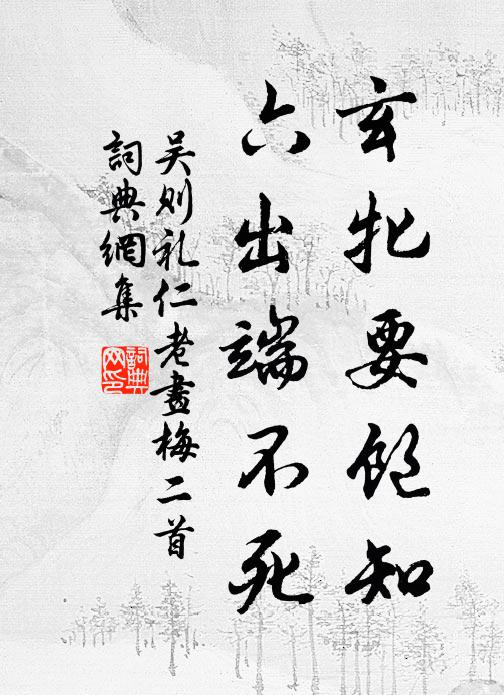 玄牝要飽知
六出端不死
吴则礼仁老畫梅二首
詞典網集
詞典
网印